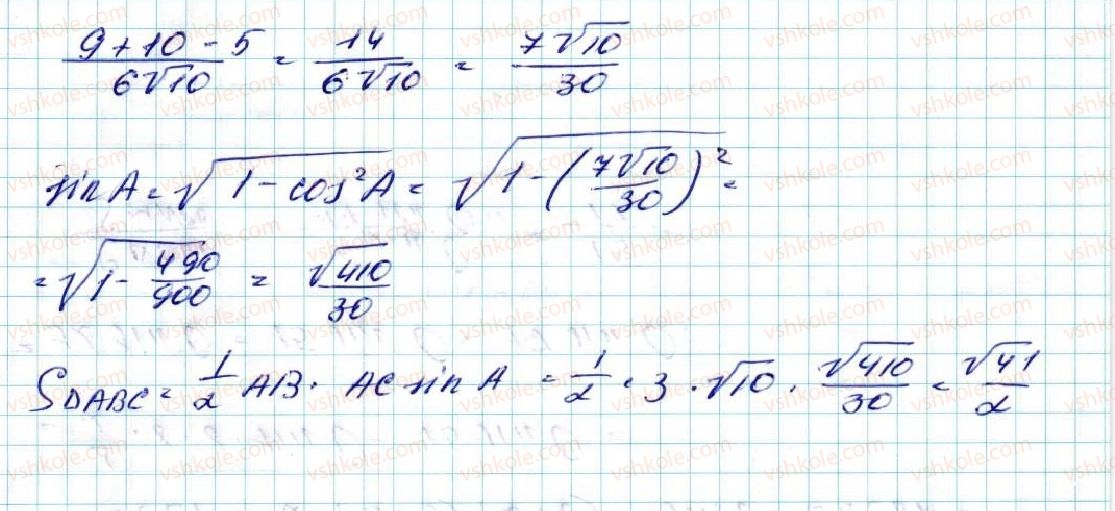 (9+10-5)/(6√10) = 14/(6√10) = 7√10/30
sin A = √(1-cos²A) = √(1-(7√10/30)²) =
= √(1-490/900) = √410/30
S△ABC = 1/2 AB · AC sin A = 1/2 · 3 · √10 · √410/30 = √41/2